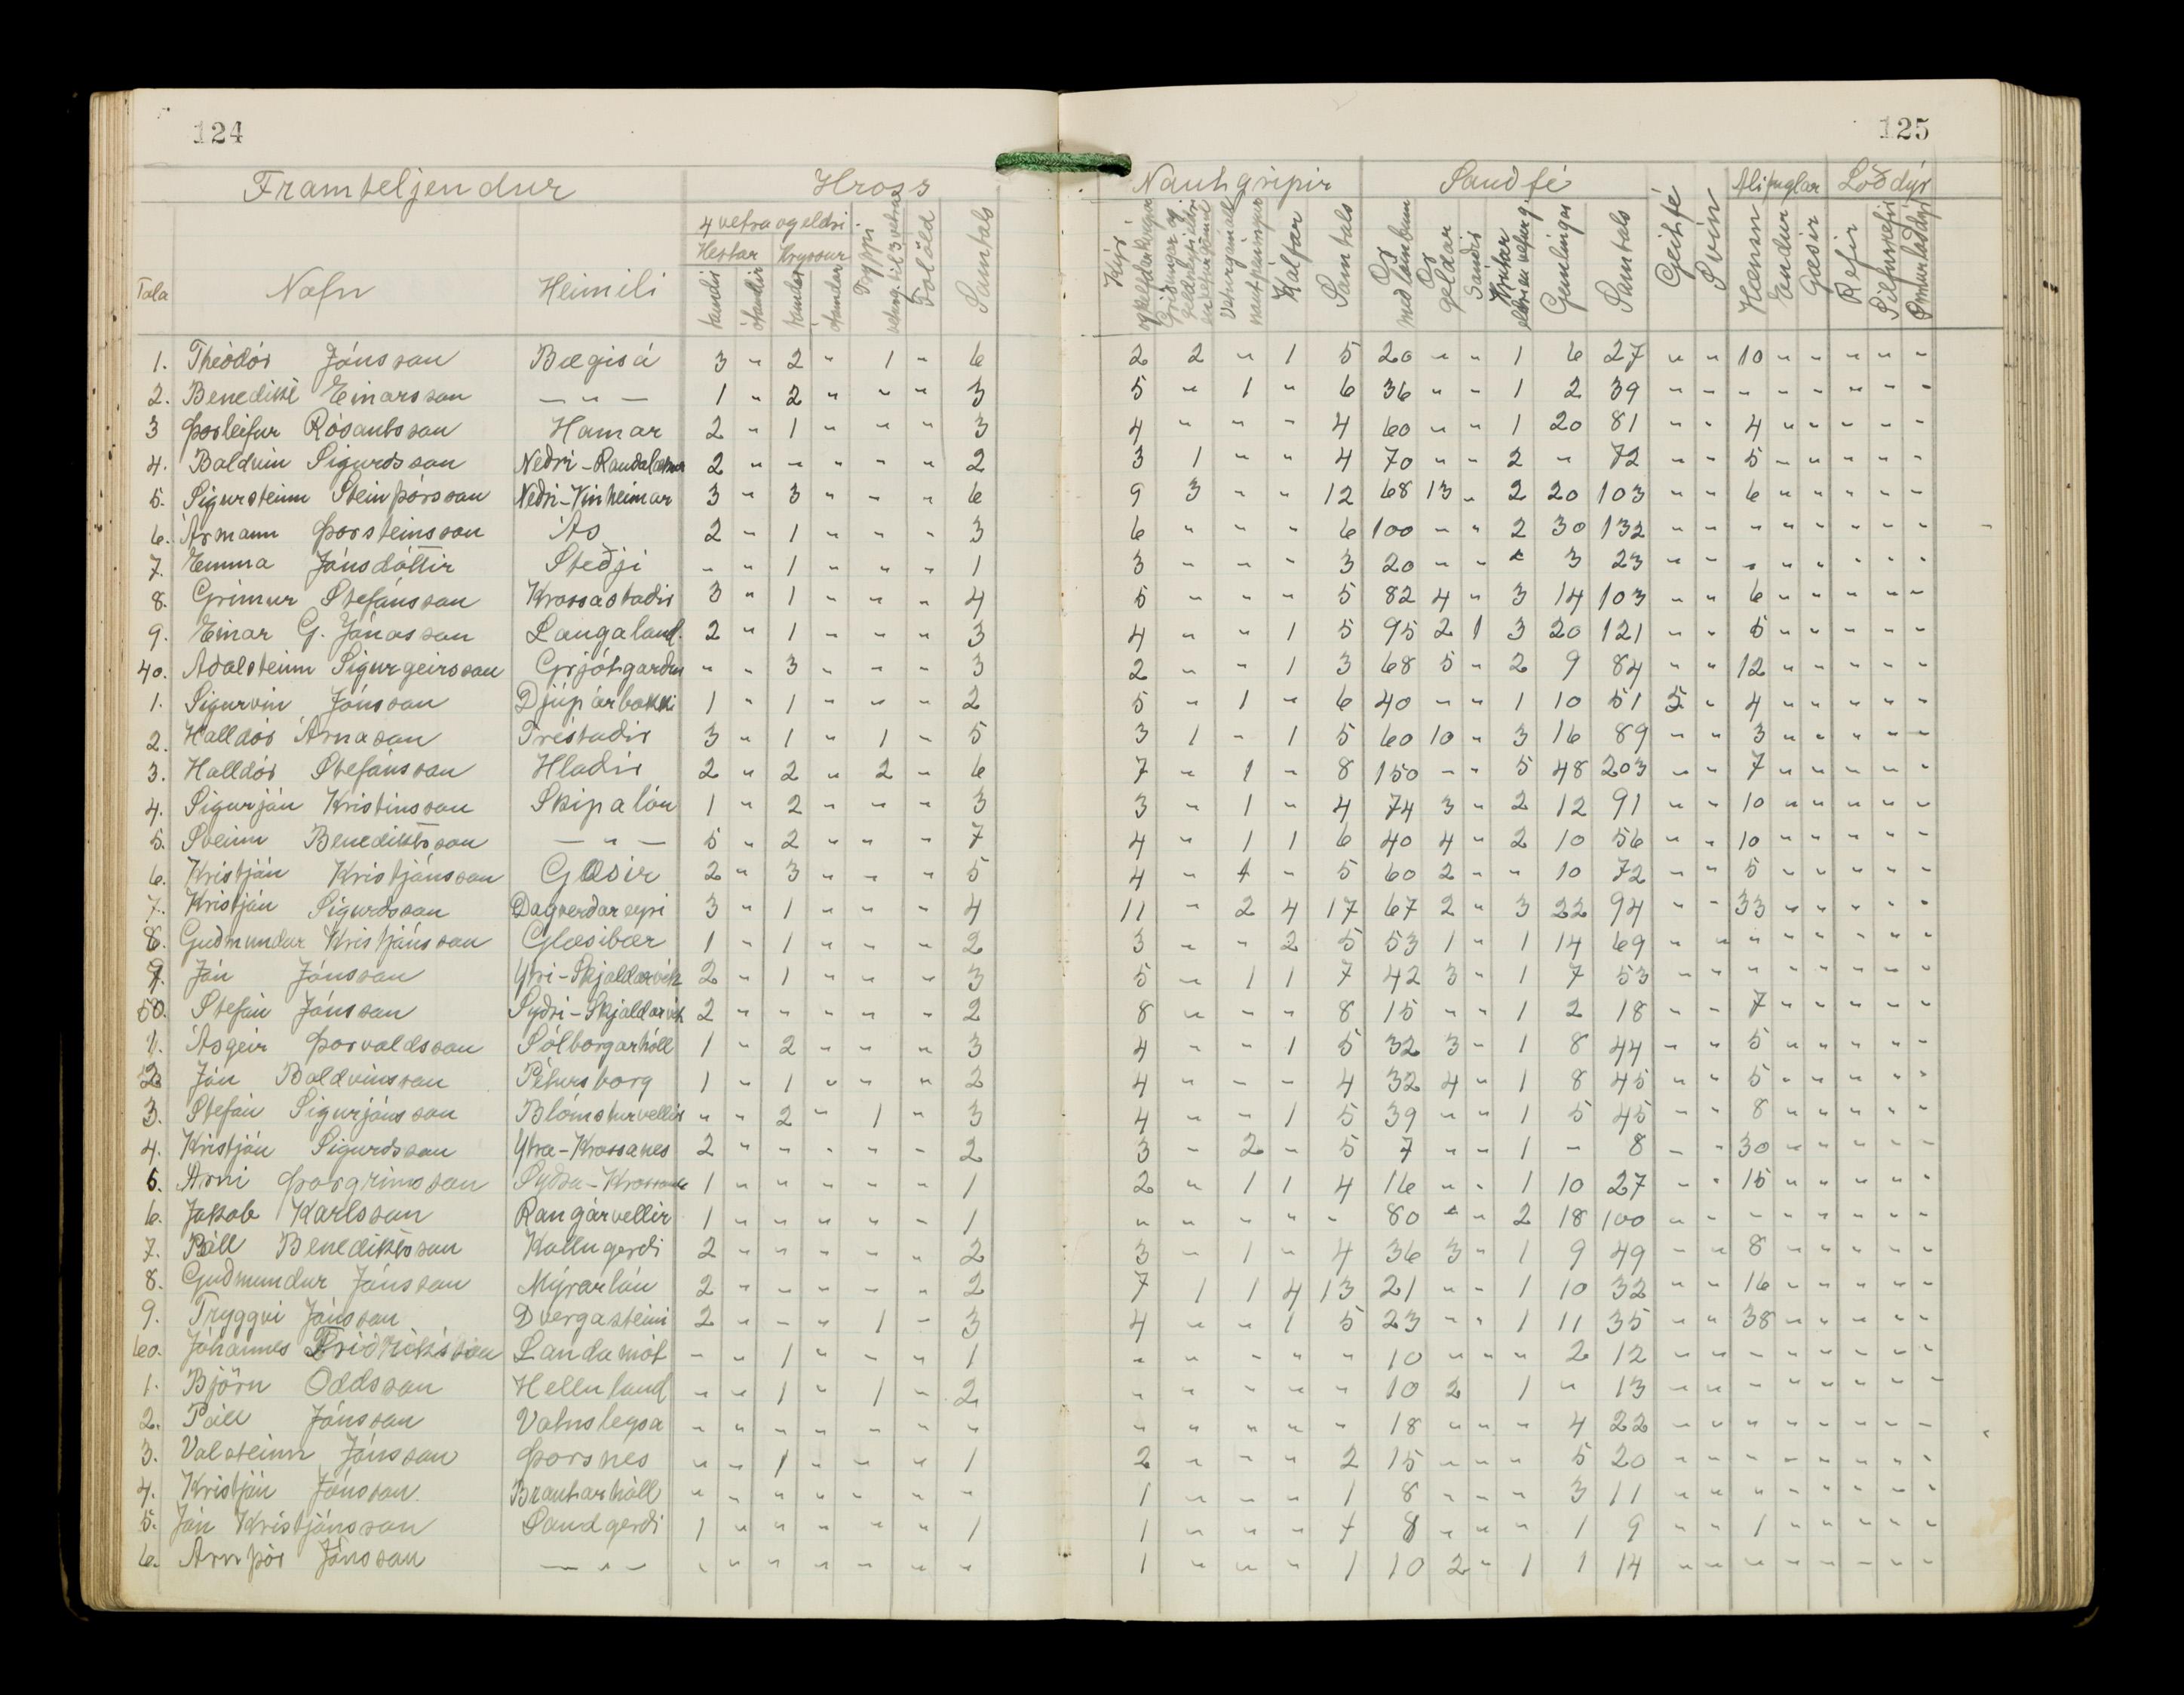 124
125
Framteljendur Hross Nautgripir Sauðfé Geitfé Svín Alifuglar Loðdýr
4 vetra og eldri
Hestar Hryssur
Tala Nafn Heimili tamdir ótamdir tamdar ótamdar Tryppi veturg. til 3 vetra Folöld Samtals Kýr og kelfdar kvígur Kálfar Samtals Ær með lömbum Ær geldar Sauðir Hrútar eldri en veturg. Gemlingar Samtals Hænsn Endur Gæsir Refir Silfurrefir Önnur loðdýr
1. Theódór Jónsson Bægisá 3 " 2 " 1 " 6 2 2 " 1 5 20 " " 1 6 27 " " 10 " " " " "
2. Benedikt Einarsson — " — 1 " 2 " " " 3 5 " 1 " 6 36 " " 1 2 39 " " " " " " " "
3 Þorleifur Rósantsson Hamar 2 " 1 " " " 3 4 " " " 4 60 " " 1 20 81 " " 4 " " " " "
4. Baldvin Sigurdsson Nedri-Raudalækur 2 " " " " " 2 3 1 " " 4 70 " " 2 " 72 " " 5 " " " " "
5. Sigursteinn Steinþórsson Nedri-Vinheimar 3 " 3 " " " 6 9 3 " " 12 68 13 " 2 20 103 " " 6 " " " " "
6. Ármann Þorsteinsson Ás 2 " 1 " " " 3 6 " " " 6 100 " " 2 30 132 " " " " " " " "
7. Emma Jónsdóttir Steðji " " 1 " " " 1 3 " " " 3 20 " " " 3 23 " " " " " " " "
8. Grímur Stefánsson Krossastadir 3 " 1 " " " 4 5 " " " 5 82 4 " 3 14 103 " " 6 " " " " "
9. Einar G. Jónasson Laugaland. 2 " 1 " " " 3 4 " " 1 5 95 2 1 3 20 121 " " 5 " " " " "
40. Adalsteinn Sigurgeirsson Grjótgardur " " 3 " " " 3 2 " " 1 3 68 5 " 2 9 84 " " 12 " " " " "
1. Sigurvin Jónsson Djúpárbakki 1 " 1 " " " 2 5 " 1 " 6 40 " " 1 10 51 5 " 4 " " " " "
2. Halldór Árnason Tréstadir 3 " 1 " 1 " 5 3 1 " 1 5 60 10 " 3 16 89 " " 3 " " " " "
3. Halldór Stefánsson Hladir 2 " 2 " 2 " 6 7 " 1 " 8 150 " " 5 48 203 " " 7 " " " " "
4. Sigurján Kristinsson Skipalón 1 " 2 " " " 3 3 " 1 " 4 74 3 " 2 12 91 " " 10 " " " " "
5. Sveinn Benediktsson — " — 5 " 2 " " " 7 4 " 1 1 6 40 4 " 2 10 56 " " 10 " " " " "
6. Kristján Kristjánsson Gæsir 2 " 3 " " " 5 4 " 1 " 5 60 2 " " 10 72 " " 5 " " " " "
7. Kristján Sigurdsson Dagverdareyri 3 " 1 " " " 4 11 " 2 4 17 67 2 " 3 22 94 " " 33 " " " " "
8. Gudmundur Kristjánsson Glæsibær 1 " 1 " " " 2 3 " " 2 5 53 1 " 1 14 69 " " " " " " " "
9. Ján Jónsson Ytri-Skjaldarvík 2 " 1 " " " 3 5 " 1 1 7 42 3 " 1 7 53 " " " " " " " "
50. Stefán Jónsson Sydri-Skjaldarvik 2 " " " " " 2 8 " " " 8 15 " " 1 2 18 " " 7 " " " " "
1. Ásgeir Þorvaldsson Sólborgarhóll 1 " 2 " " " 3 4 " " 1 5 32 3 " 1 8 44 " " 5 " " " " "
2. Ján Baldvinsson Pétursborg 1 " 1 " " " 2 4 " " " 4 32 4 " 1 8 45 " " 5 " " " " "
3. Stefán Sigurjánsson Blómsturvellir " " 2 " 1 " 3 4 " " 1 5 39 " " 1 5 45 " " 8 " " " " "
4. Kristján Sigurdsson Ytra-Krossanes 2 " " " " " 2 3 " 2 " 5 7 " " 1 " 8 " " 30 " " " " "
5. Árni Þorgrimsson Sydra-Krossanes 1 " " " " " 1 2 " 1 1 4 16 " " 1 10 27 " " 15 " " " " "
6. Jakob Karlsson Rangárvellir 1 " " " " " 1 " " " " " 80 " " 2 18 100 " " " " " " " "
7. Páll Benediktsson Kollugerdi 2 " " " " " 2 3 " 1 " 4 36 3 " 1 9 49 " " 8 " " " " "
8. Gudmundur Jónsson Mýrarlón 2 " " " " " 2 7 1 1 4 13 21 " " 1 10 32 " " 16 " " " " "
9. Tryggvi Jónsson Dvergasteinn 2 " " " 1 " 3 4 " " 1 5 23 " " 1 11 35 " " 38 " " " " "
60. Jóhannes Fridriksson Landamót " " 1 " " " 1 " " " " " 10 " " " 2 12 " " " " " " " "
1. Björn Oddsson Helluland " " 1 " 1 " 2 " " " " " 10 2 1 " 13 " " " " " " " "
2. Páll Jónsson Vatnslegsa " " " " " " " " " " " " 18 " " " 4 22 " " " " " " " "
3. Valsteinn Jónsson Þorsnes " " 1 " " " 1 2 " " " 2 15 " " " 5 20 " " " " " " " "
4. Kristján Jónsson Brautarhóll " " " " " " " 1 " " " 1 8 " " " 3 11 " " " " " " " "
5. Ján Kristjánsson Sandgerdi 1 " " " " " 1 1 " " " 1 8 " " " 1 9 " " 1 " " " " "
6. Arnþór Jónsson — " — " " " " " " " 1 " " " 1 10 2 " 1 1 14 " " " " " " " "